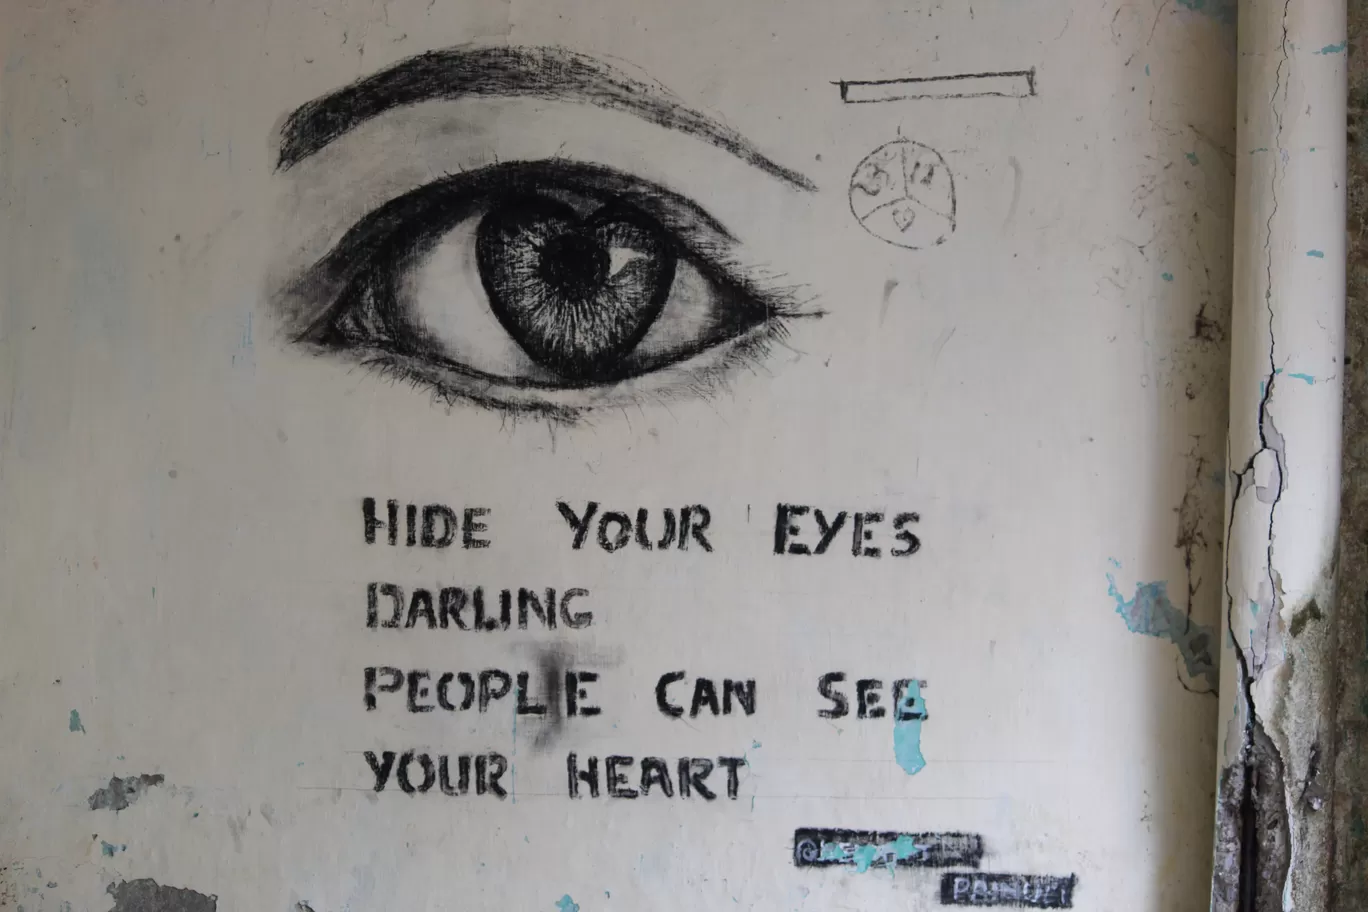 HIDE YOUR EYES
DARLING
PEOPLE CAN SEE
YOUR HEART